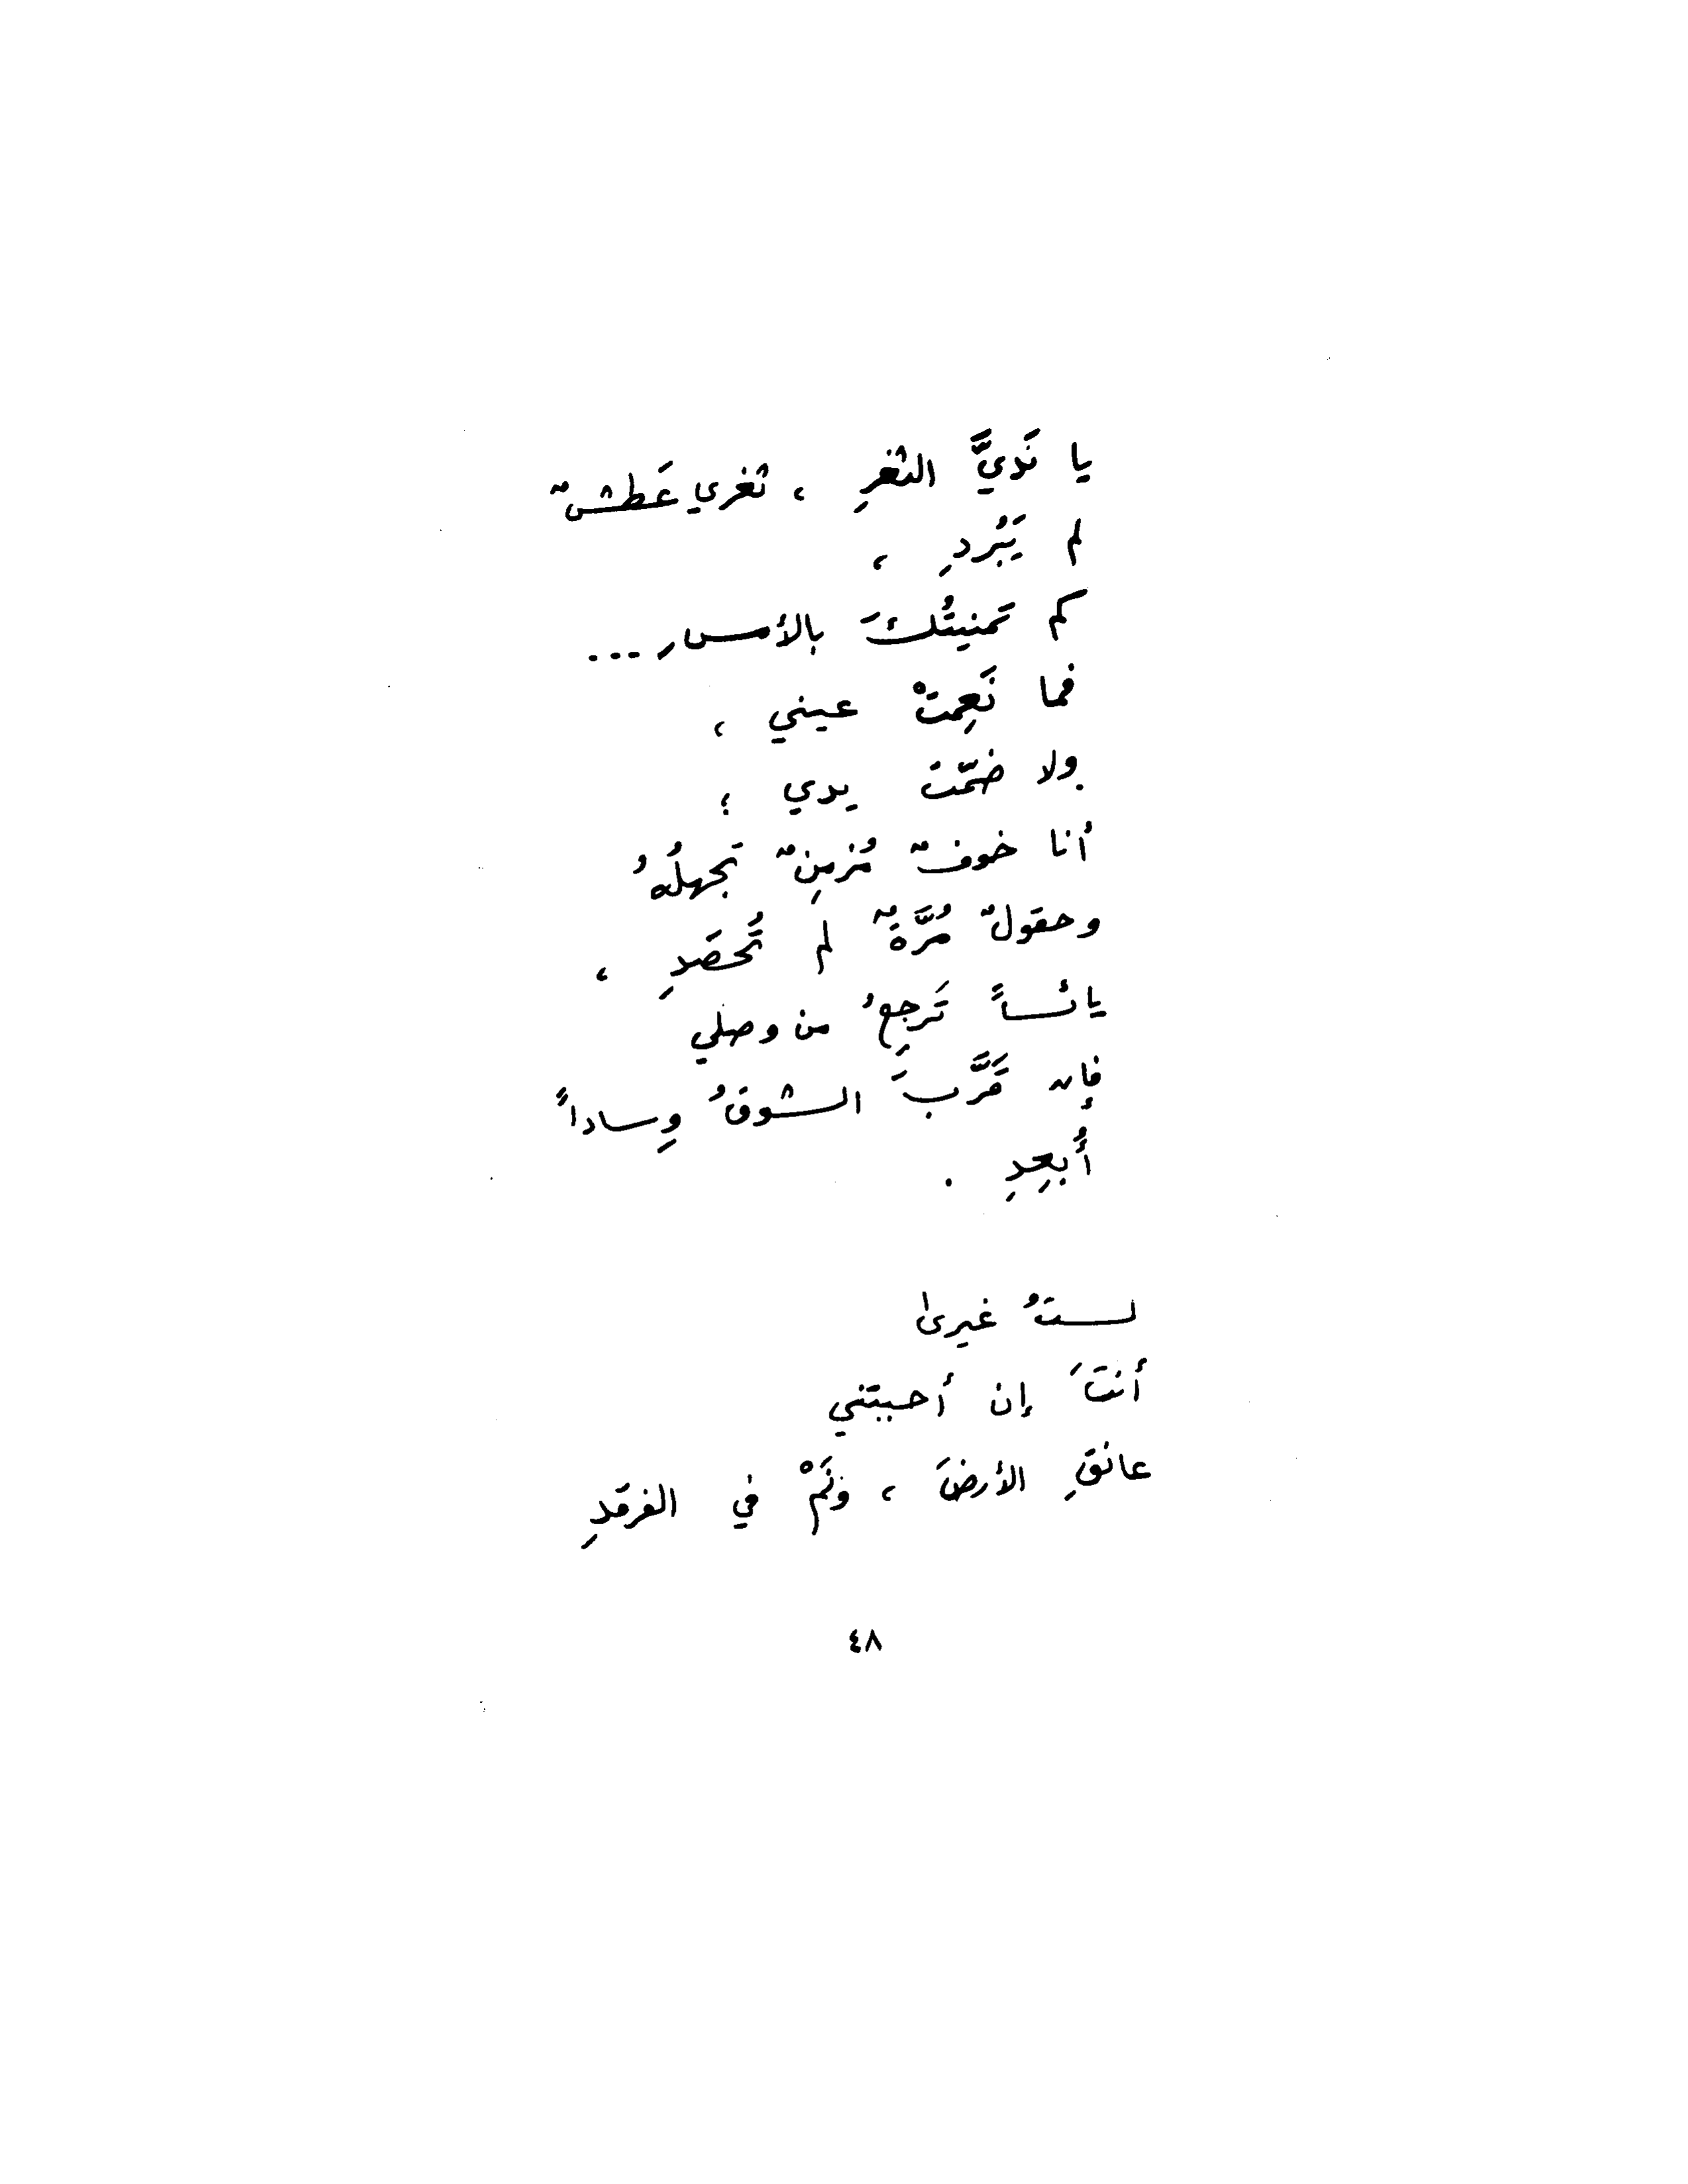 يا نَديَّ الثغرِ ، ثغري عَطشٌ
لم يَبْردِ ،
كم تَمنيتُكَ بالأمسِ ...
فما نَعِمتْ عيني ،
ولا ضمّت يدي ؛
أنا خوفٌ مُزمِنٌ تَجهلُهُ
وحقولٌ مُرَّةٌ لم تُحصَدِ ،
يائساً تَرجِعُ من وصلي
فإن قَرَّبَ الشوقُ وِساداً
أُبعِدِ .
لستُ غيرىٰ
أنتَ إن أحببتني
عانقِ الأرضَ ، ونَمْ في الفرقدِ
٤٨